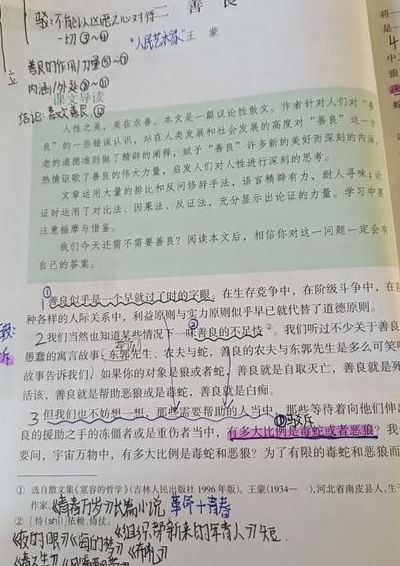 二 善 良
驳:不能认凶恶之心对待
一切③~④
"人民艺术家" 王 蒙
立
善良的作用/力量⑤~⑦
内涵/外延
结论:喜欢善良
课文导读
人性之美,美在求善。本文是一篇议论性散文。作者针对人们对"善
良"的一些错误认识,站在人类发展和社会发展的高度对"善良"这一
老的道德准则做了精辟的阐释,赋予"善良"许多新的美好而深刻的内涵,
热情讴歌了善良的伟大力量,启发人们对人性进行深刻的思考。
文章运用大量的排比和反问修辞手法,语言精辟有力,耐人寻味;论
证时运用了对比法、因果法、反证法,充分显示出论证的力量。学习中要
注意揣摩与借鉴。
我们今天还需不需要善良?阅读本文后,相信你对这一问题一定会有
自己的答案。
①善良似乎是一个早就过了时的字眼。在生存竞争中,在阶级斗争中,在
种各样的人际关系中,利益原则与实力原则似乎早已就代替了道德原则。
2 我们当然也知道某些情况下一味善良的不足恃②。我们听过不少关于善良
愚蠢的寓言故事:东郭先生、农夫与蛇,善良的农夫与东郭先生是多么可笑
故事告诉我们,如果你的对象是狼或者蛇,善良就是自取灭亡,善良就是死
活该,善良就是帮助恶狼或是毒蛇,善良就是白痴。
3 但我们也不妨想一想,那些需要帮助的人当中,那些等待着向他们伸
良的援助之手的冻僵者或是重伤者当中,有多大比例是毒蛇或者恶狼?我
要问,宇宙万物中,有多大比例是毒蛇和恶狼?为了有限的毒蛇和恶狼而
① 选自散文集《宽容的哲学》(吉林人民出版社 1996 年版)。王蒙(1934— ),河北省南皮县人,
作家。《青春万岁》长篇小说 革命+青春
② [恃(shì)]依赖,倚仗。
《夜的眼》《海的梦》《组织部新来的年青人》短.